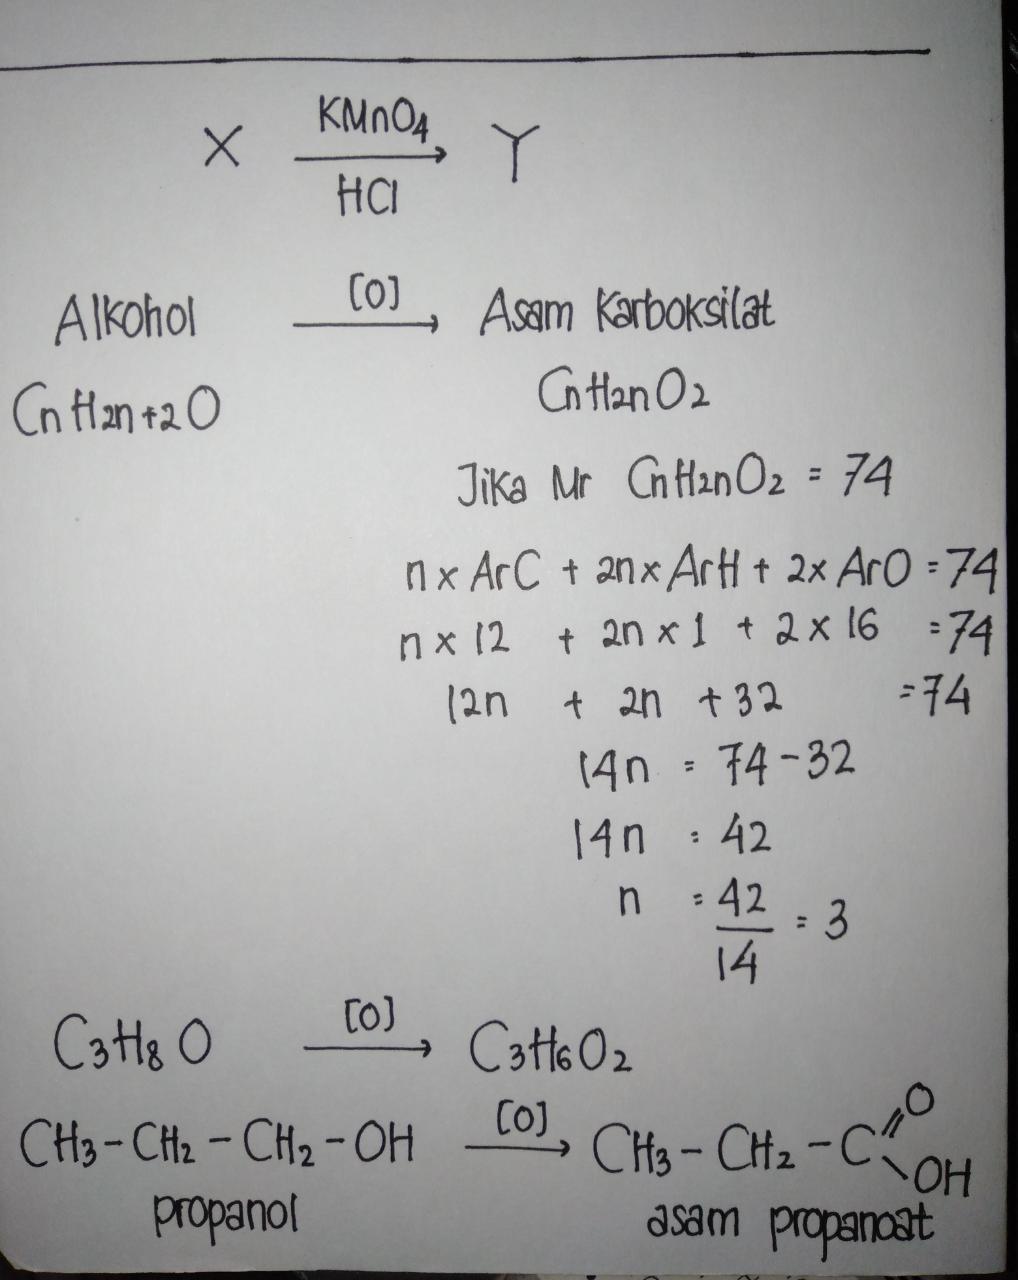 X KMnO4 / HCl → Y
Alkohol [O] → Asam Karboksilat
CnH2n+2O CnH2nO2
Jika Mr CnH2nO2 = 74
n x ArC + 2n x ArH + 2 x ArO = 74
n x 12 + 2n x 1 + 2 x 16 = 74
12n + 2n + 32 = 74
14n = 74 - 32
14n = 42
n = 42/14 = 3
C3H8O [O] → C3H6O2
CH3 - CH2 - CH2 - OH [O] → CH3 - CH2 - C=O - OH
propanol asam propanoat